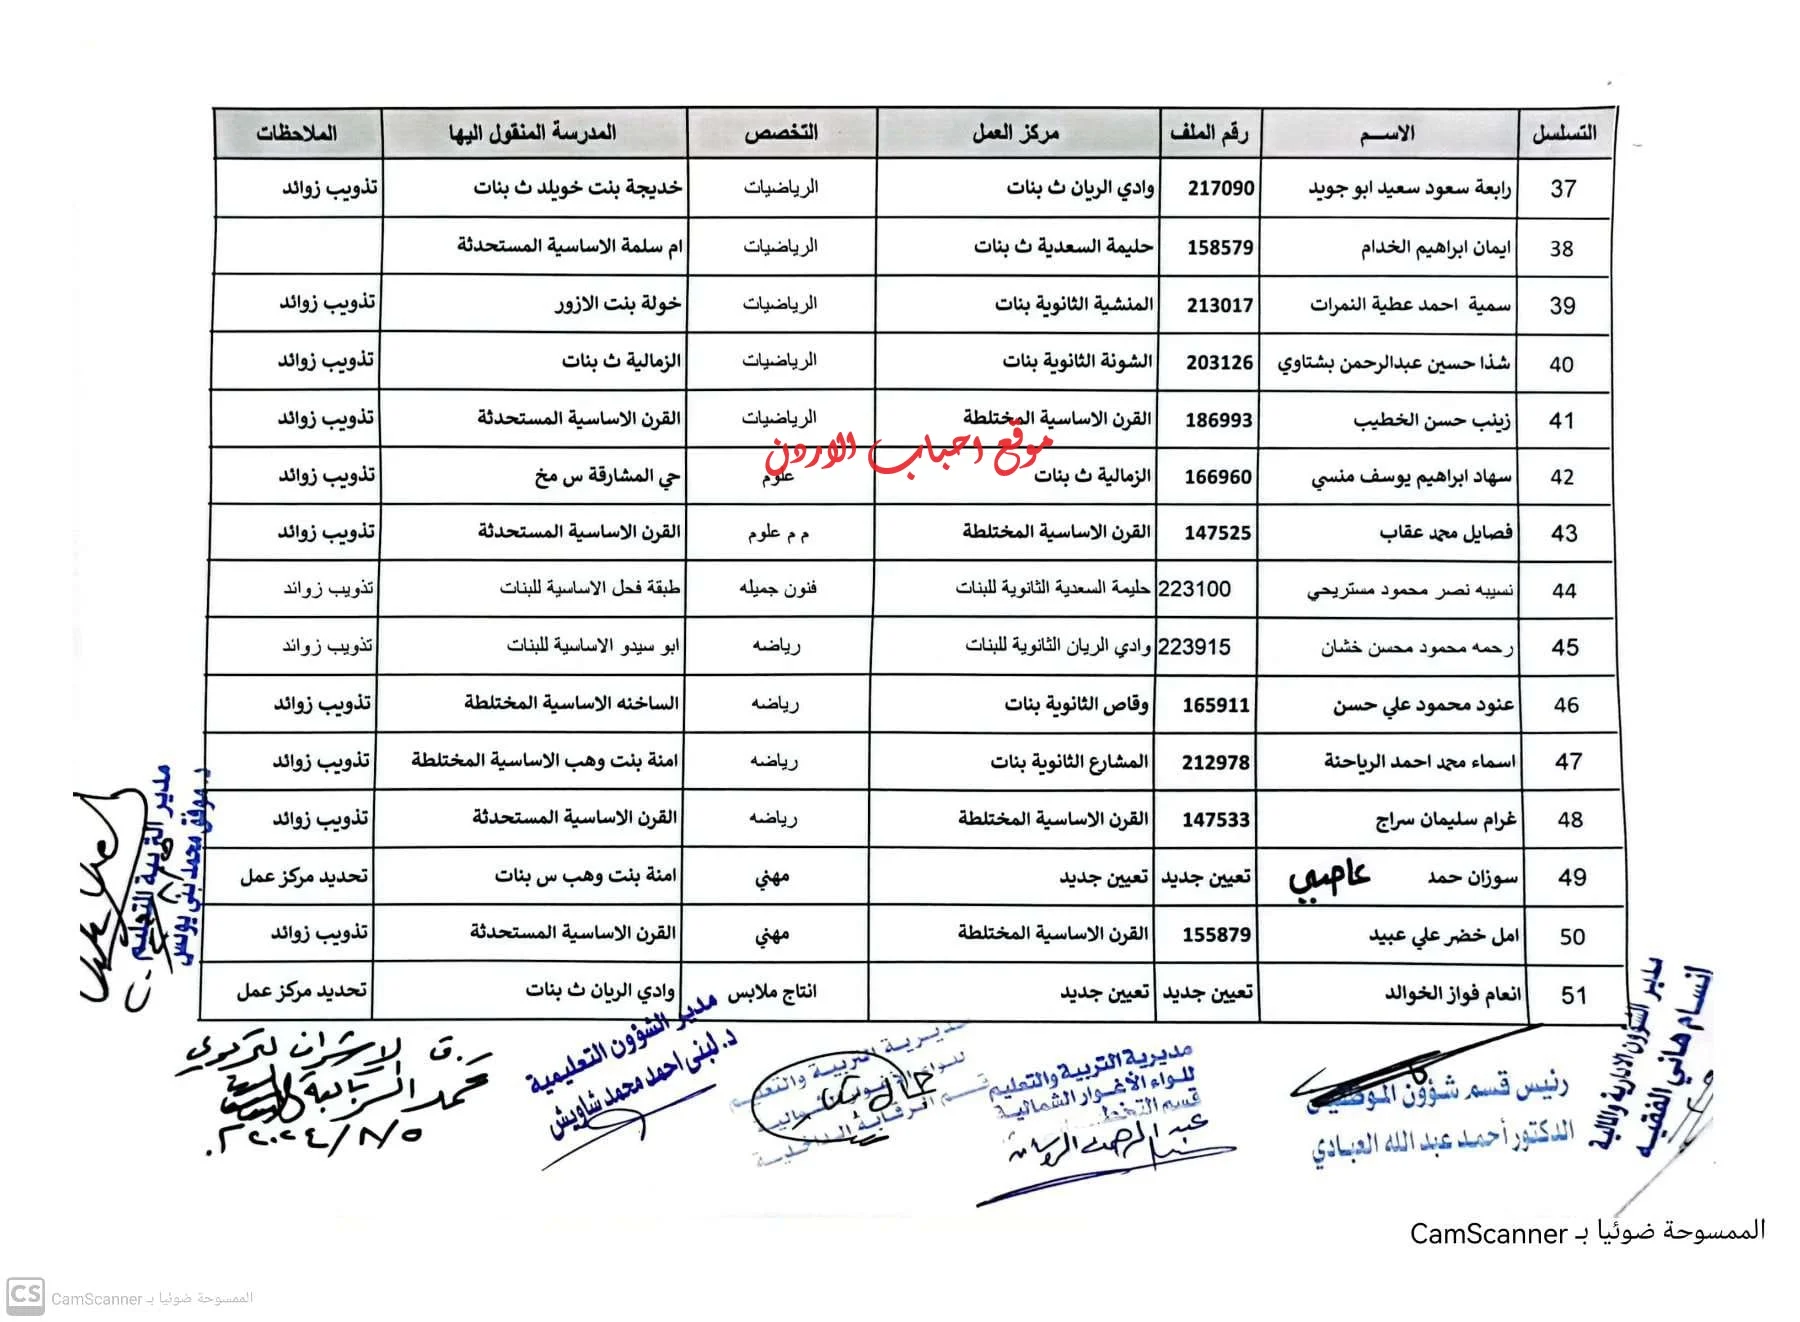 التسلسل الاســم رقم الملف مركز العمل التخصص المدرسة المنقول اليها الملاحظات
37 رابعة سعود سعيد ابو جويد 217090 وادي الريان ث بنات الرياضيات خديجة بنت خويلد ث بنات تذويب زوائد
38 ايمان ابراهيم الخدام 158579 حليمة السعدية ث بنات الرياضيات ام سلمة الاساسية المستحدثة
39 سمية احمد عطية النمرات 213017 المنشية الثانوية بنات الرياضيات خولة بنت الازور تذويب زوائد
40 شذا حسين عبدالرحمن بشتاوي 203126 الشونة الثانوية بنات الرياضيات الزمالية ث بنات تذويب زوائد
41 زينب حسن الخطيب 186993 القرن الاساسية المختلطة الرياضيات القرن الاساسية المستحدثة تذويب زوائد
موقع احباب الاردن
42 سهاد ابراهيم يوسف منسي 166960 الزمالية ث بنات علوم حي المشارقة س مخ تذويب زوائد
43 فصايل محمد عقاب 147525 القرن الاساسية المختلطة م م علوم القرن الاساسية المستحدثة تذويب زوائد
44 نسيبه نصر محمود مستريحي 223100 حليمة السعدية الثانوية للبنات فنون جميله طبقة فحل الاساسية للبنات تذويب زوائد
45 رحمه محمود محسن خشان 223915 وادي الريان الثانوية للبنات رياضه ابو سيدو الاساسية للبنات تذويب زوائد
46 عنود محمود علي حسن 165911 وقاص الثانوية بنات رياضه الساخنه الاساسية المختلطة تذويب زوائد
47 اسماء محمد احمد الرياحنة 212978 المشارع الثانوية بنات رياضه امنة بنت وهب الاساسية المختلطة تذويب زوائد
48 غرام سليمان سراج 147533 القرن الاساسية المختلطة رياضه القرن الاساسية المستحدثة تذويب زوائد
49 سوزان حمد عاصي تعيين جديد تعيين جديد مهني امنة بنت وهب س بنات تحديد مركز عمل
50 امل خضر علي عبيد 155879 القرن الاساسية المختلطة مهني القرن الاساسية المستحدثة تذويب زوائد
51 انعام فواز الخوالد تعيين جديد تعيين جديد انتاج ملابس وادي الريان ث بنات تحديد مركز عمل
مدير الشؤون الادارية والمالية
انسام هاني الفقيه
رئيس قسم شؤون الموظفين
الدكتور أحمد عبد الله العبادي
مديرية التربية والتعليم
للواء الأغوار الشمالية
قسم التخطيط
عبد الرحمن
مديرية التربية والتعليم
للواء الأغوار الشمالية
قسم الرقابة الداخلية
مدير الشؤون التعليمية
د. لبنى احمد محمد شاويش
ر.ق الاشراف التربوي
محمد
٢٠٢٤/٨/٥
مدير التربية والتعليم
د. موفق محمد بني يونس
الممسوحة ضوئيا بـ CamScanner
CS الممسوحة ضوئيا بـ CamScanner